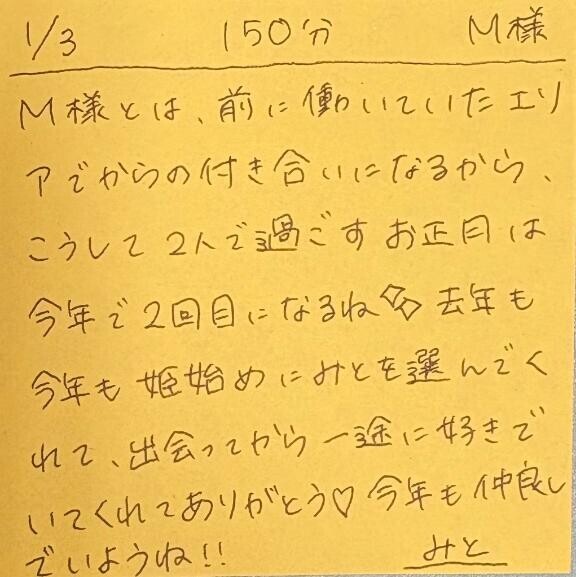 1/3 150分 M様
M様とは、前に働いていたエリ
アでからの付き合いになるから、
こうして2人で過ごすお正月は
今年で2回目になるね 去年も
今年も姫始めにみとを選んでく
れて、出会ってから一途に好きで
いてくれてありがとう♡ 今年も仲良し
でいようね!! みと